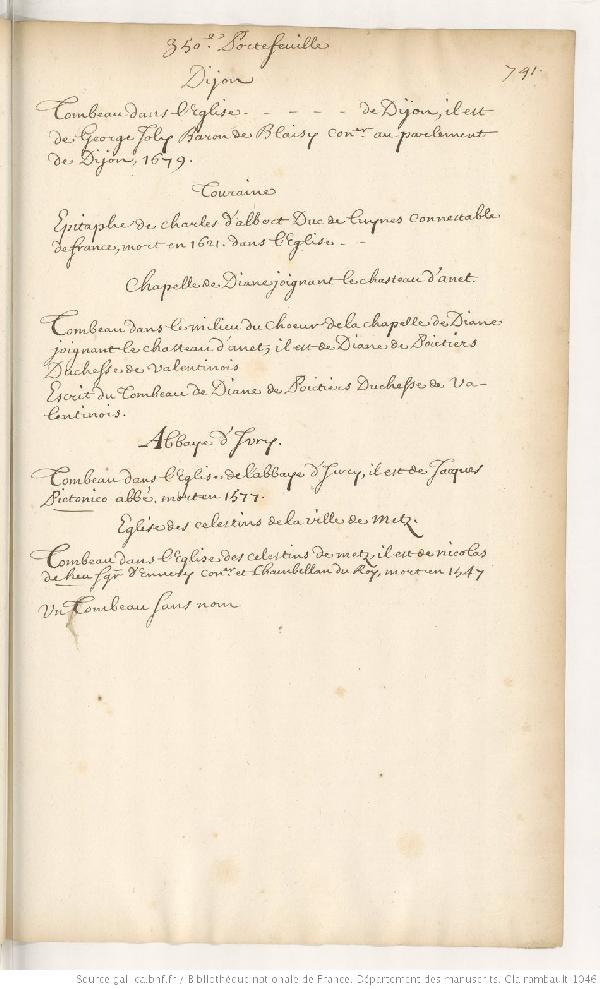 350.e Portefeuille
791.
Dijon
Tombeau dans l'Eglise - - - - - de Dijon, il est
de George Joly Baron de Blaisy con.er au parlement
de Dijon, 1679.
Touraine
Epitaphe de charles d'albert Duc de Luynes connestable
de france, mort en 1621. dans l'Eglise - -
Chapelle de Diane joignant le chasteau d'anet.
Tombeau dans le milieu du choeur de la chapelle de Diane
joignant le chasteau d'anet; il est de Diane de Poitiers
Duchesse de Valentinois
Escrit du Tombeau de Diane de Poitiers Duchesse de Va-
lentinois.
Abbaye d'Ivry.
Tombeau dans l'Eglise de l'abbaye d'Ivry, il est de Jacques
Pictonico abbé, mort en 1577.
Eglise des celestins de la ville de Metz.
Tombeau dans l'Eglise des celestins de metz, il est de nicolas
de heu sgr d'Ennery con.er et Chambellan du Roy, mort en 1547
Un Tombeau sans nom
Source gallica.bnf.fr / Bibliothèque nationale de France. Département des manuscrits. Clairambault 1046